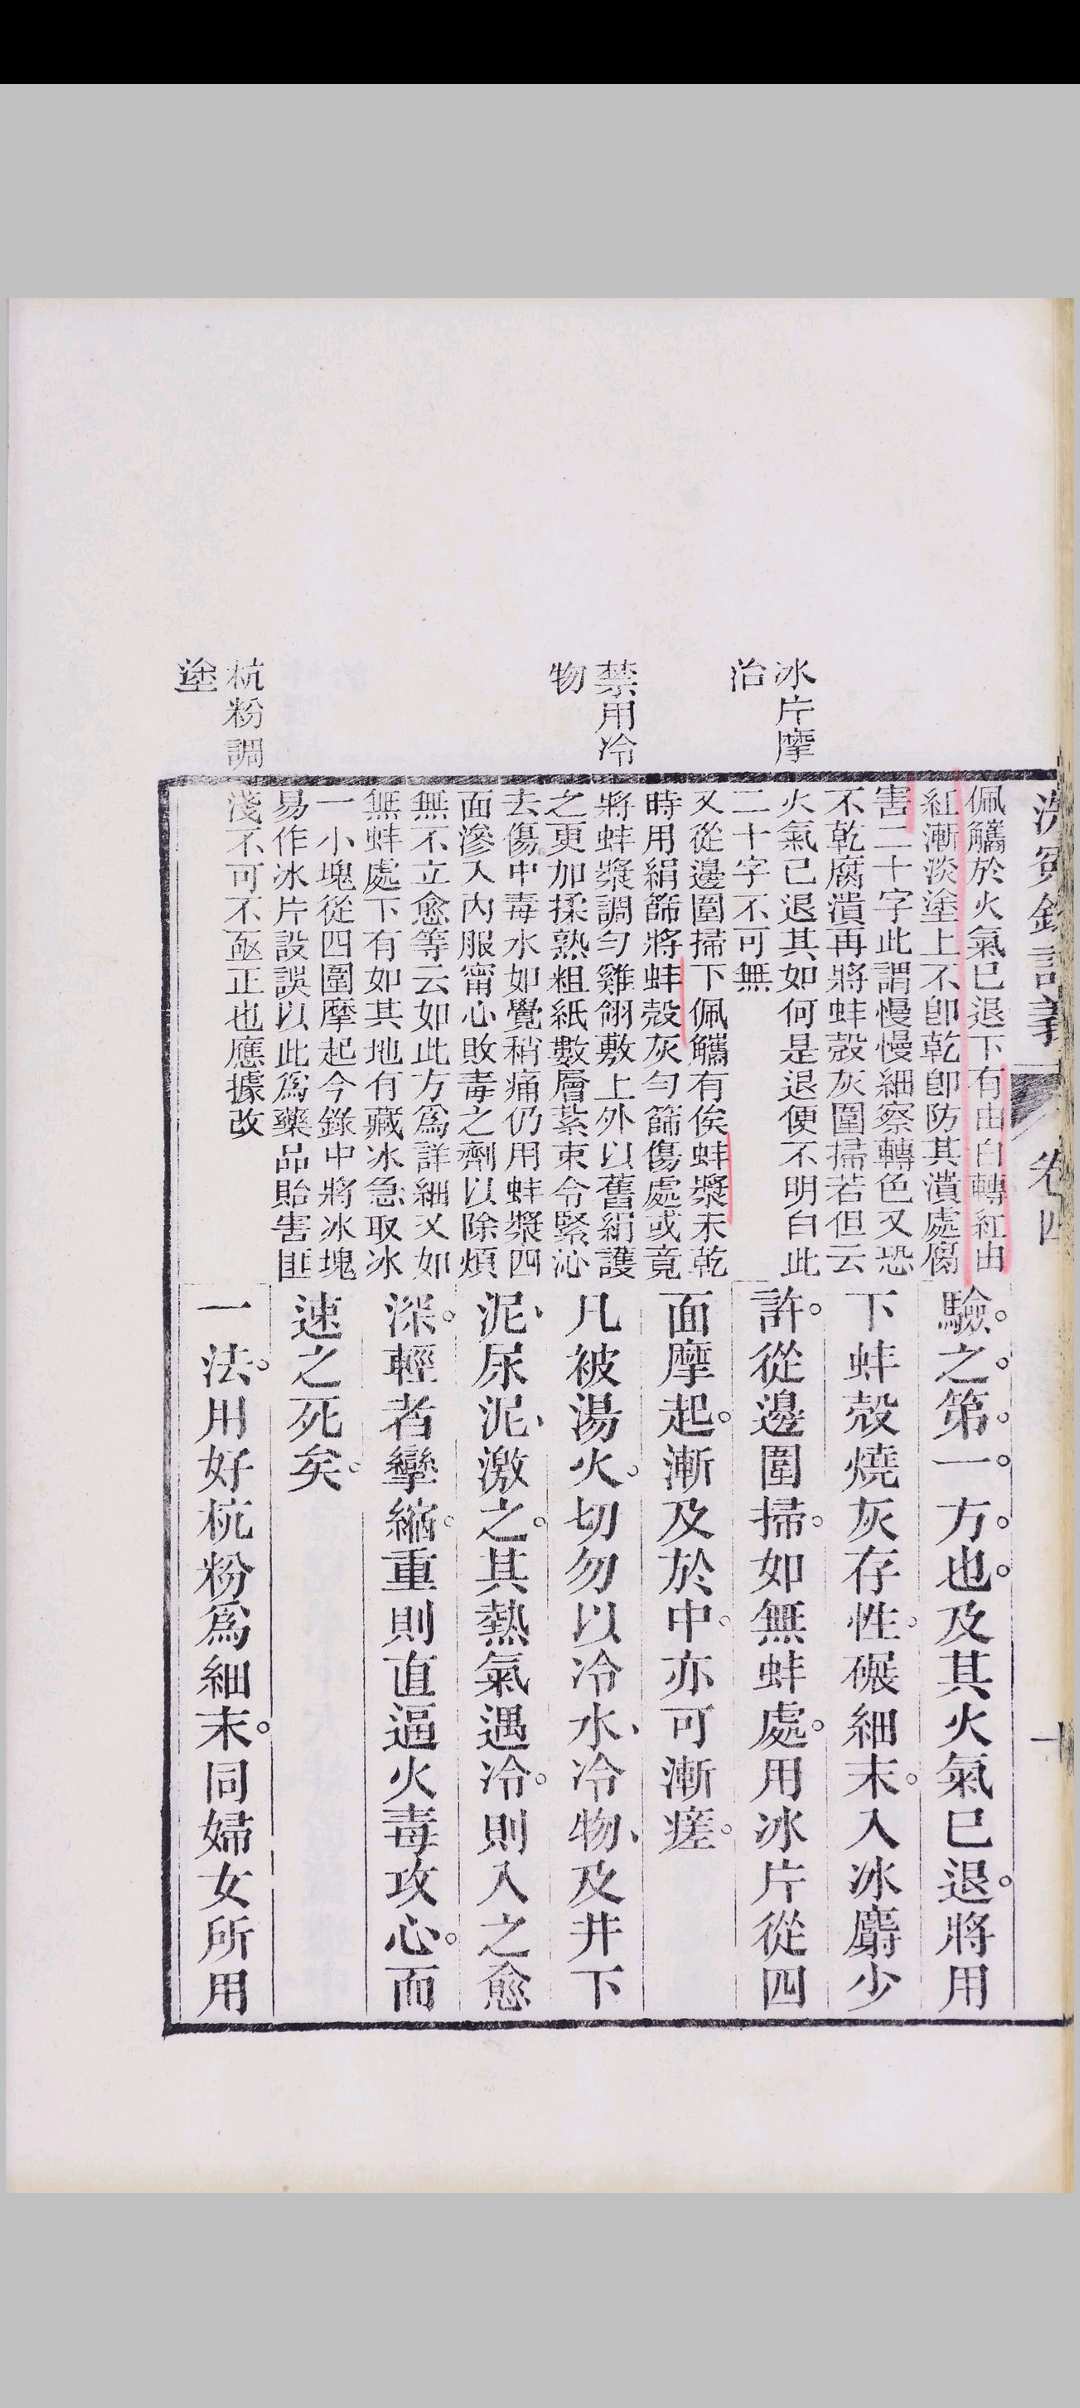 洗冤錄詳義
卷四
十
冰片摩
治
禁用冷
物
杭粉調
塗
佩觿於火氣已退下有由白轉紅由
紅漸淡塗上不卽乾卽防其潰處腐
害二十字此謂慢慢細察轉色又恐
不乾腐潰再將蚌殼灰圍掃若但云
火氣已退其如何是退便不明白此
二十字不可無
又從邊圍掃下佩觿有俟蚌漿未乾
時用絹篩將蚌殼灰勻篩傷處或竟
將蚌漿調勻雞翎敷上外以舊絹護
之更加揉熟粗紙數層紮束令緊沁
去傷中毒水如覺稍痛仍用蚌漿四
面滲入內服甯心敗毒之劑以除煩
無不立愈等云如此方爲詳細又如
無蚌處下有如其地有藏冰急取冰
一小塊從四圍摩起今錄中將冰塊
易作冰片設誤以此爲藥品貽害匪
淺不可不亟正也應據改
驗之第一方也及其火氣已退將用
下蚌殼燒灰存性碾細末入冰麝少
許從邊圍掃如無蚌處用冰片從四
面摩起漸及於中亦可漸瘥
凡被湯火切勿以冷水冷物及井下
泥尿泥激之其熱氣遇冷則入之愈
深輕者攣縮重則直逼火毒攻心而
速之死矣
一法用好杭粉爲細末同婦女所用